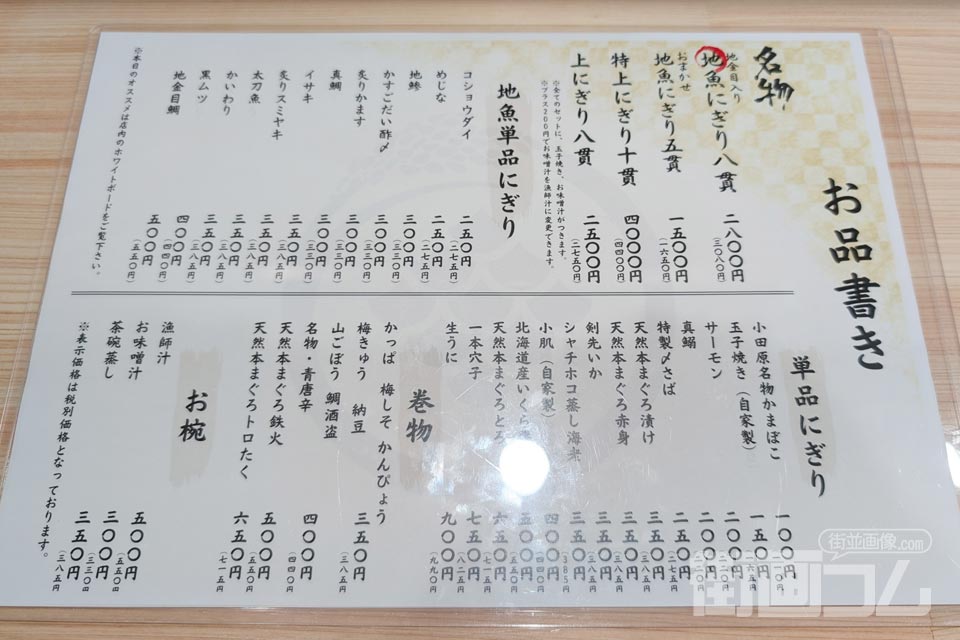 お品書き
名物
地金目入り
地魚にぎり八貫 二八〇〇円
(三〇八〇円)
おまかせ
地魚にぎり五貫 一五〇〇円
(一六五〇円)
特上にぎり十貫 四〇〇〇円
(四四〇〇円)
上にぎり八貫 二五〇〇円
(二七五〇円)
※全てのセットに、玉子焼き、お味噌汁がつきます。
※プラス200円でお味噌汁を漁師汁に変更できます。
地魚単品にぎり
コショウダイ 二五〇円
(二七五円)
めじな 二五〇円
(二七五円)
地鯵 三〇〇円
(三三〇円)
かすごだい酢〆 三〇〇円
(三三〇円)
炙りかます 三〇〇円
(三三〇円)
真鯛 三〇〇円
(三三〇円)
イサキ 三〇〇円
(三三〇円)
炙りスミヤキ 三五〇円
(三八五円)
太刀魚 三五〇円
(三八五円)
かいわり 三五〇円
(三八五円)
黒ムツ 四〇〇円
(四四〇円)
地金目鯛 五〇〇円
(五五〇円)
※本日のオススメは店内のホワイトボードをご覧下さい。
単品にぎり
小田原名物かまぼこ 一〇〇円
玉子焼き(自家製) 一五〇円
サーモン 二〇〇円
真鰯 二〇〇円
特製〆さば 二五〇円
(二七五円)
天然本まぐろ漬け 三五〇円
(三八五円)
天然本まぐろ赤身 三五〇円
(三八五円)
剣先いか 三五〇円
(三八五円)
シャチホコ蒸し海老 三五〇円
(385円)
小肌(自家製) 四〇〇円
(四四〇円)
北海道産いくら 五〇〇円
(五五〇円)
天然本まぐろとろ 六五〇円
(七一五円)
一本穴子 七五〇円
(八二五円)
生うに 九〇〇円
(九九〇円)
巻物
かっぱ 梅しそ かんぴょう
梅きゅう 納豆 三五〇円
(三八五円)
山ごぼう 鯛酒盗
名物・青唐辛 四〇〇円
(四四〇円)
天然本まぐろ鉄火 五〇〇円
(五五〇円)
天然本まぐろトロたく 六五〇円
(七一五円)
お椀
漁師汁 五〇〇円
(五五〇円)
お味噌汁 三〇〇円
(三三〇円)
茶碗蒸し 三五〇円
(三八五円)
※表示価格は税別価格となっております。
街並画像.com
街画コム